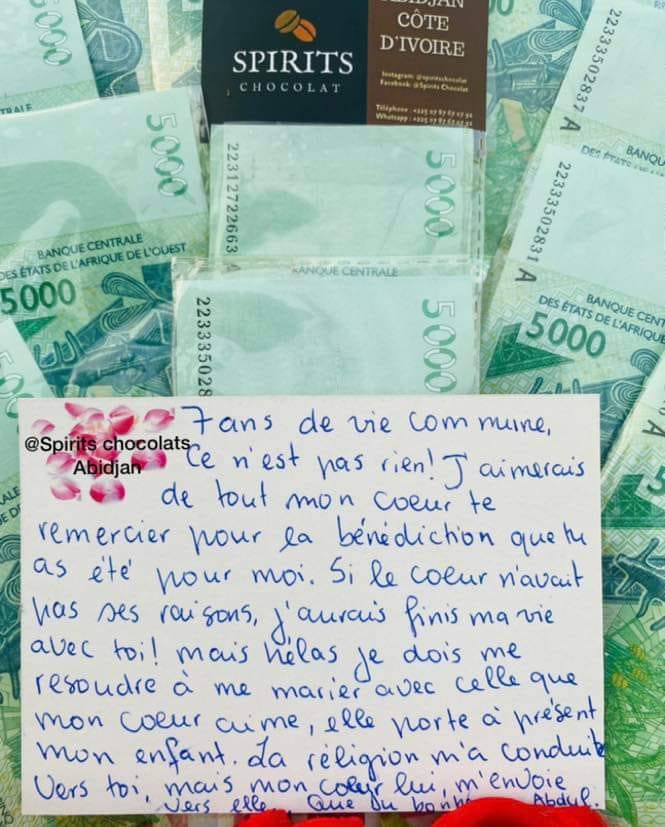 ABIDJAN
CÔTE
D'IVOIRE
SPIRITS
CHOCOLAT
Instagram: @spiritschocolat
Facebook: @Spirits Chocolat
Téléphone : +225 07
Whatsapp : +225 07
5000
TRALE
5000
BANQUE CENTRALE
DES ÉTATS DE L'AFRIQUE DE L'OUEST
5000
22312722663 A
5000
BANQUE CENTRALE
223335028
5000
22333502837 A
BANQU
DES ÉTATS DE L'A
22333502831 A
BANQUE CENT
DES ÉTATS DE L'AFRIQUE
5000
@Spirits chocolats
Abidjan
7 ans de vie commune,
Ce n'est pas rien! J'aimerais
de tout mon coeur te
remercier pour la bénédiction que tu
as été pour moi. Si le coeur n'avait
pas ses raisons, j'aurais finis ma vie
avec toi! mais hélas je dois me
resoudre à me marier avec celle que
mon coeur aime, elle porte à présent
mon enfant. La réligion m'a conduit
vers toi, mais mon coeur lui, m'envoie
vers elle. Que du bonh Abdul.